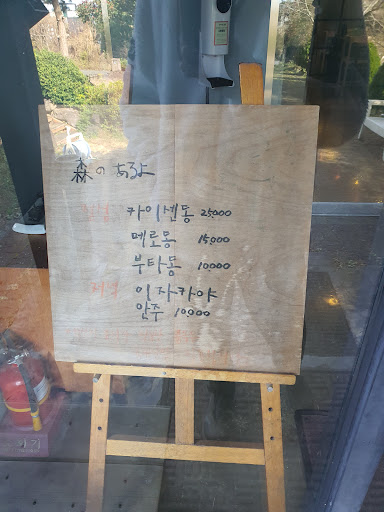 森の あるよ
점심 카이센동 25,000
메로동 15,000
부타동 10,000
저녁 이자카야
안주 10,000